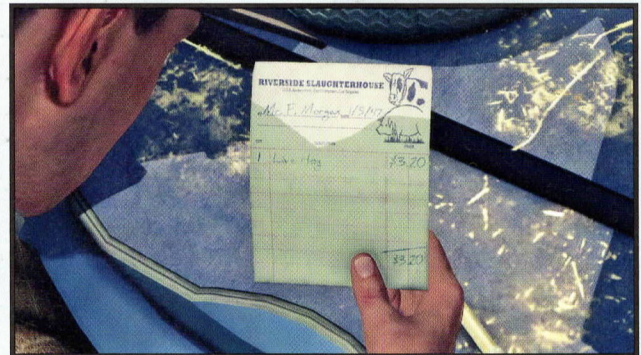 RIVERSIDE SLAUGHTERHOUSE
Mr. F. Morgan 1/3/47
1 Live Hog $3.20
$3.20